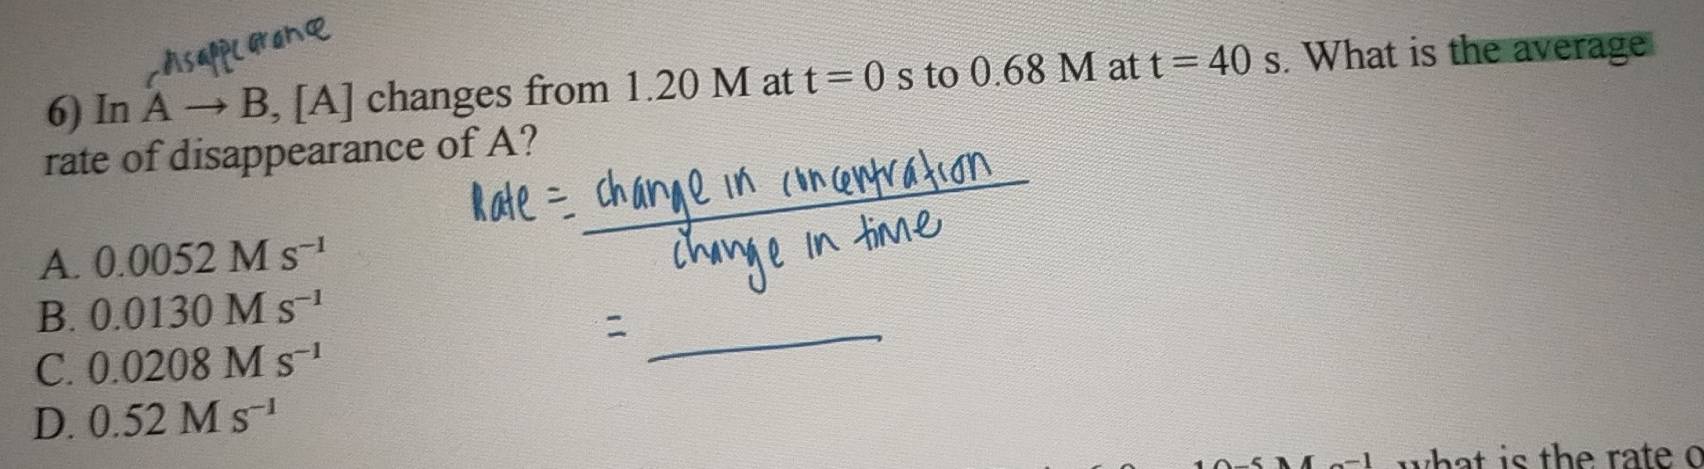 disappearance
6) In A → B, [A] changes from 1.20 M at t = 0 s to 0.68 M at t = 40 s. What is the average
rate of disappearance of A?
Rate = change in concentration
change in time
=
A. 0.0052 M s⁻¹
B. 0.0130 M s⁻¹
C. 0.0208 M s⁻¹
D. 0.52 M s⁻¹
10⁻⁵ M s⁻¹ what is the rate